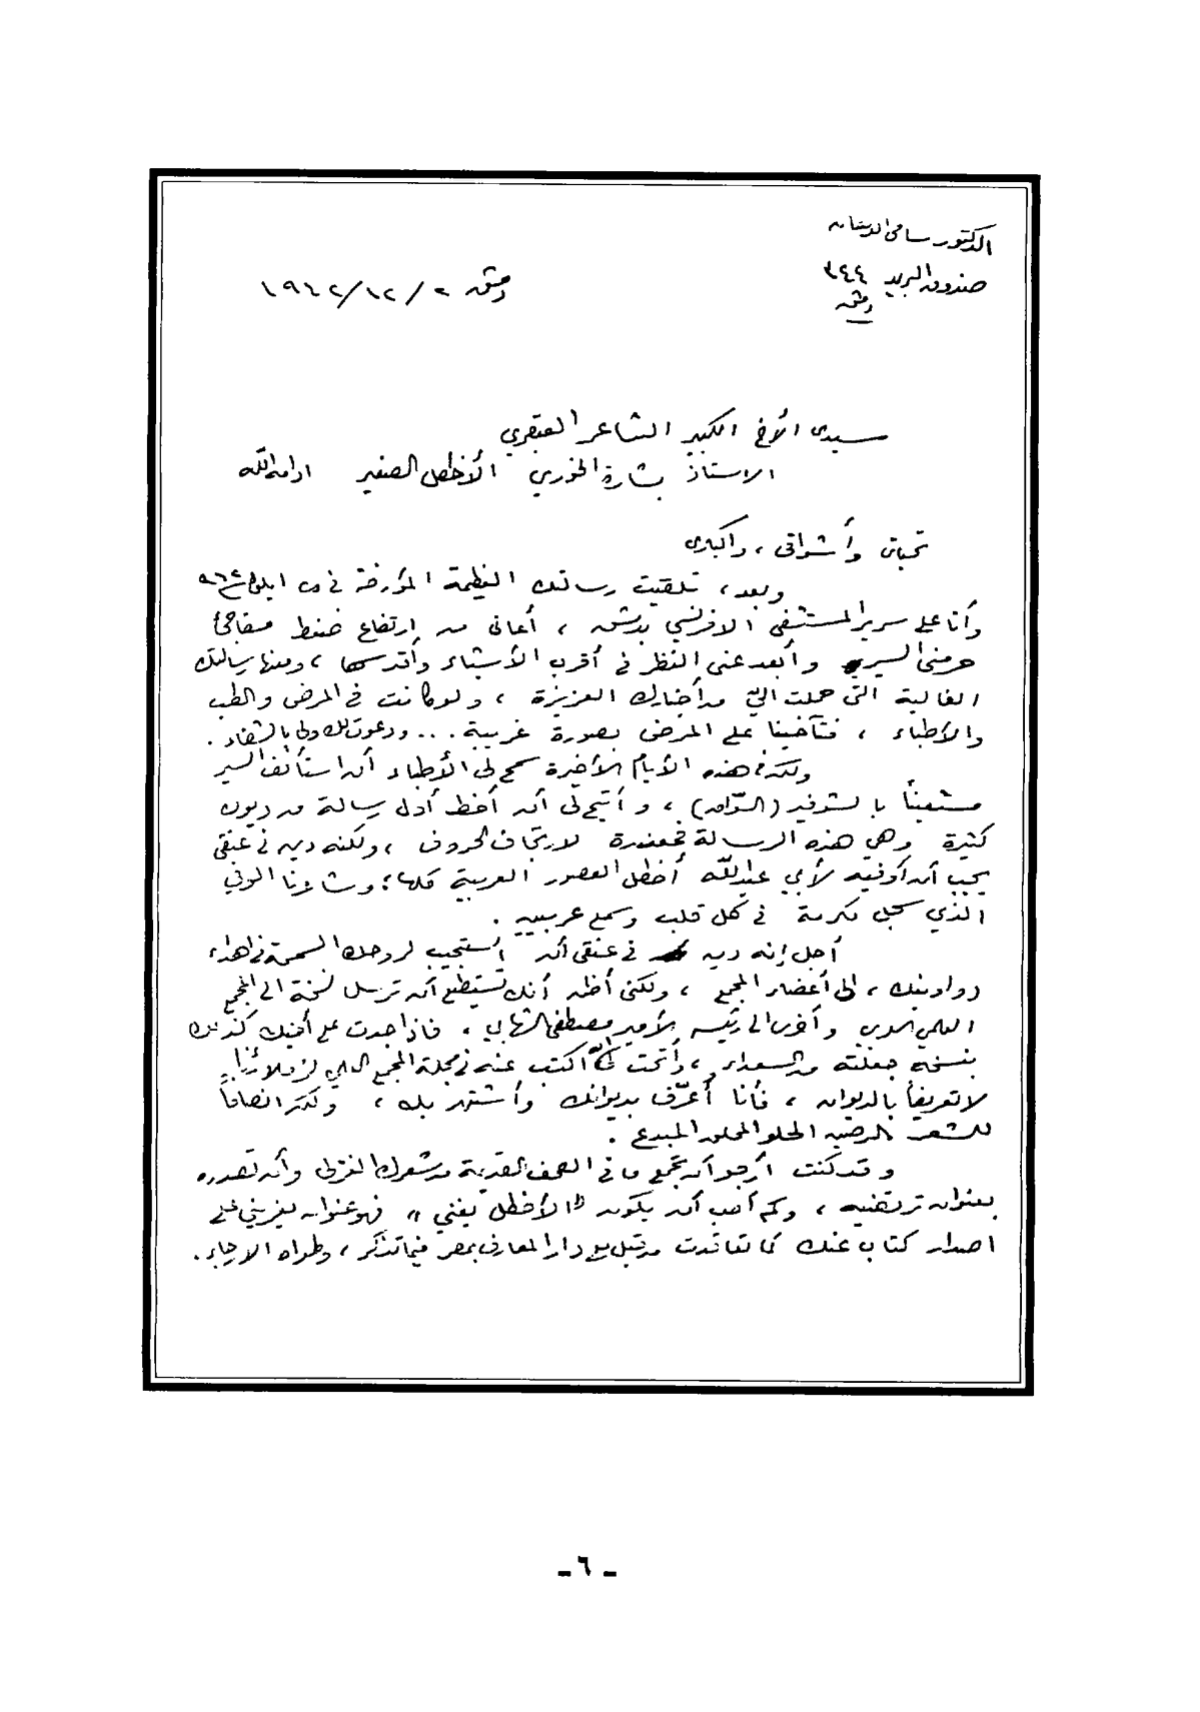 الدكتور سامي الدهان
صندوق البريد ٣٤٤
دمشق
دمشق ٢ / ١٢ / ١٩٦٢
سيدي الأخ الكبير الشاعر العبقري
الاستاذ بشارة الخوري الأخطل الصغير ادامه الله
تحياتي وأشواقي ، واكباري
وبعد ، تلقيت رسالتك العظيمة المؤرخة في ايلول
وأنا على سرير المستشفى الافرنسي بدمشق ، أعاني من إرتفاع ضغط مفاجئ
حرمني السير وأبعد عني النظر في أقرب الأشياء وأقدسها ، ومنها رسالتك
الغالية التي حملت اليّ من أخبارك العزيزة ، ولو كانت في المرض والطب
والأطباء ، فتآخينا على المرض بصورة غريبة ... ودعوت لك ولي بالشفاء .
ولكن في هذه الأيام الأخيرة سمح لي الأطباء أن استأنف السير
مستعيناً با لستوفير (الدّامر) ، وأتيح لي أن أخط أول رسالة من ديون
كثيرة وهي هذه الرسالة لارتجاف الحروف ، ولكنه دين في عنقي
يجب أن أوفيه لأبي عبدالله أخطل العصور العربية كلها ؛ وشاعرنا الوفي
الذي سجل مكرمة في كل قلب وسمع عربيين .
أجل إنه دين في عنقي أن أستجيب لروحك السمحة في اهداء
دواوينك ، الى أعضاء المجمع ، ولكني أظن أنك تستطيع أن ترسل نسخة الى المجمع
العلمي العربي وأخرى الى رئيسه الأمير مصطفى الشهابي ، فاذا جدت على أخيك كذلك
بنسخة جعلته من السعداء ، وأتحت لي أن اكتب عنه في مجلة المجمع العلمي
لا تعريفاً بالديوان ، فأنا أُعرّف بديوانك وأشتهر بك ، ولكن انصافاً
للشعر الرصين الحلو المحلق المبدع .
وقد كنت أرجو أن تجمع ما في الصحف القديمة من شعرك الغزلي وأن تصدره
بعنوان ترتضيه ، وكم أحب أن يكون « الأخطل يغني » فهو عنوان يغريني على
اصدار كتاب عنك كما تعاقدت من قبل مع دار المعارف بمصر فيما تذكر ، وطواه الارجاء .
ـ ٦ ـ